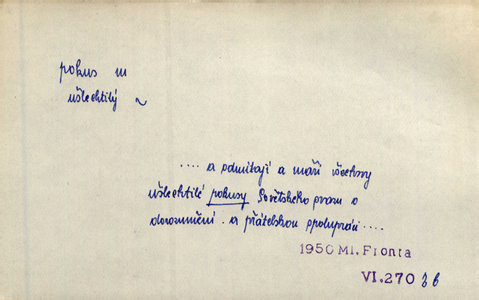 pokus m
ušlechtilý ~
.... a odmítají a maří všechny
ušlechtilé pokusy Sovětského svazu o
dorozumění a přátelskou spolupráci ....
1950 Ml. Fronta
VI.270 36